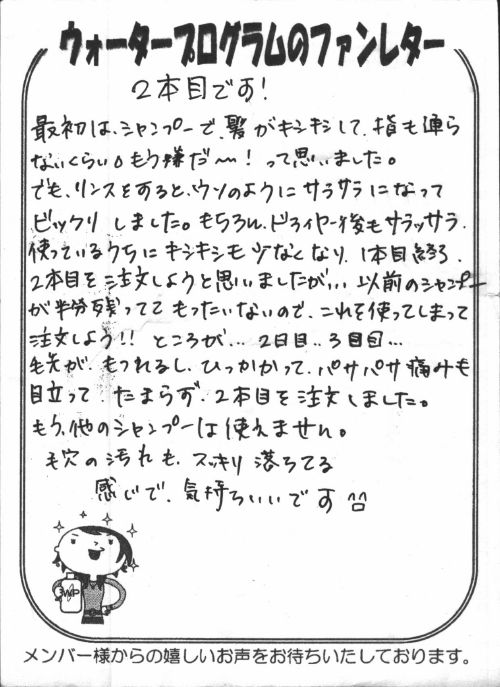 ウォータープログラムのファンレター
2本目です!
最初は、シャンプーで、髪がキシキシして、指も通ら
ないくらい。もう嫌だ〜!って思いました。
でも、リンスをすると、ウソのようにサラサラになって
ビックリしました。もちろん、ドライヤー後もサラッサラ。
使っているうちにキシキシも少なくなり、1本目終了。
2本目を注文しようと思いましたが… 以前のシャンプー
が半分残っててもったいないので、これを使ってしまって
注文しよう!! ところが… 2日目‥3日目…
毛先が、もつれるし、ひっかかって、パサパサ痛みも
目立って たまらず、2本目を注文しました。
もう、他のシャンプーは使えません。
毛穴の汚れも、スッキリ落ちてる
感じで、気持ちいいです
WP
メンバー様からの嬉しいお声をお待ちいたしております。